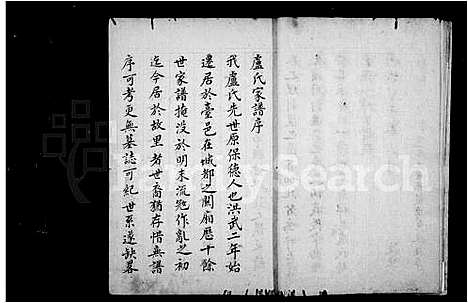 盧氏家譜序
我盧氏先世原保德人也洪武二年始
遷居於臺邑在城都之關廂歷十餘
世家譜掩沒於明末流寇作亂之初
迄今居於故里者世裔猶存惜無譜
序可考更無墓誌可紀世系遂缺畧
FamilySearch